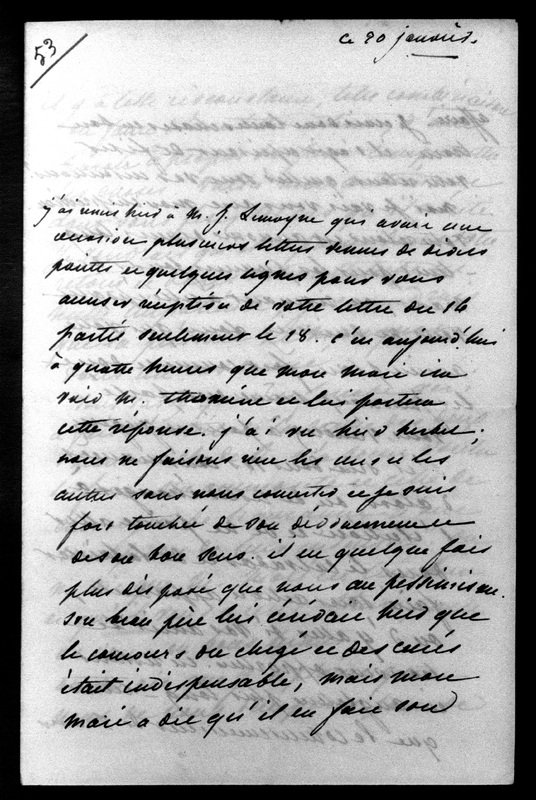 53
ce 20 janvier.
j'ai remis hier à M. J. Lemoyne qui avait une
occasion plusieurs lettres venues de divers
points et quelques lignes pour vous
accuser réception de votre lettre du 16
partie seulement le 18. c'est aujourd'hui
à quatre heures que mon mari ira
voir M. et lui portera
cette réponse. j'ai vu hier ;
nous ne faisons rien les uns et les
autres sans nous concerter et je suis
fort touchée de son dévouement et
de son bon sens. il est quelque fois
plus disposé que nous au pessimisme.
son beau père lui écrivait hier que
le concours du clergé et des curés
était indispensable, mais mon
mari a dit qu'il en fait son